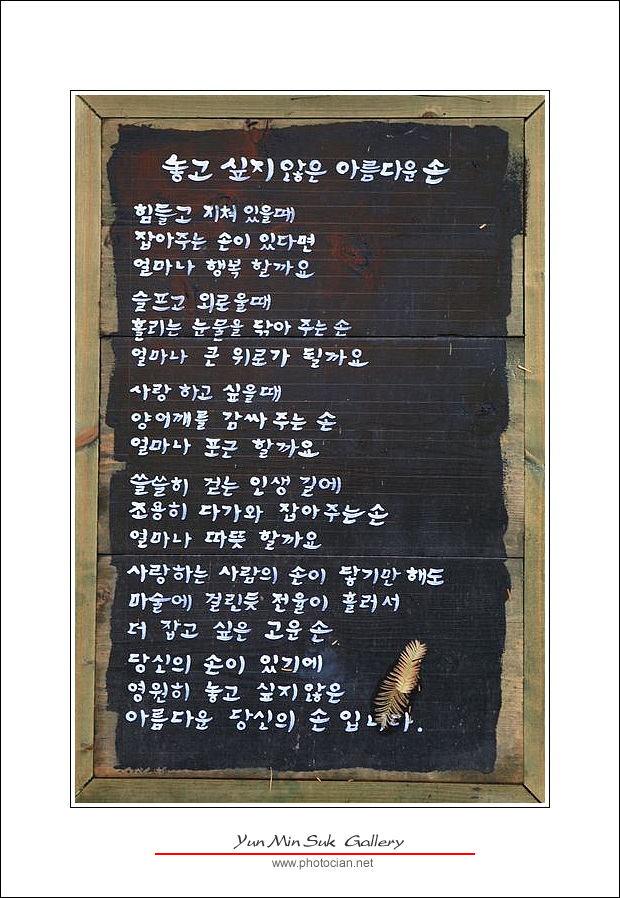 놓고 싶지 않은 아름다운 손
힘들고 지쳐 있을때
잡아주는 손이 있다면
얼마나 행복 할까요
슬프고 외로울때
흘리는 눈물을 닦아 주는 손
얼마나 큰 위로가 될까요
사랑 하고 싶을때
양어깨를 감싸 주는 손
얼마나 포근 할까요
쓸쓸히 걷는 인생 길에
조용히 다가와 잡아주는 손
얼마나 따뜻 할까요
사랑하는 사람의 손이 닿기만 해도
마술에 걸린듯 전율이 흘러서
더 잡고 싶은 고운 손
당신의 손이 있기에
영원히 놓고 싶지않은
아름다운 당신의 손 입니다.
Yun Min Suk Gallery
www.photocian.net